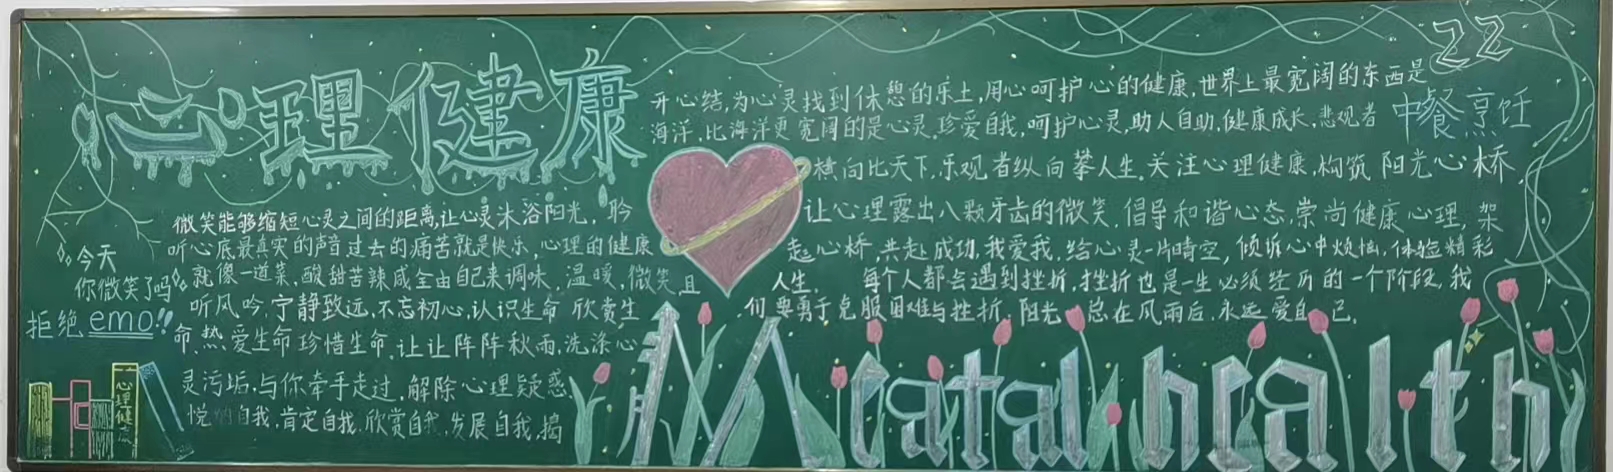 心理健康
22
中餐烹饪
微笑能够缩短心灵之间的距离,让心灵沐浴阳光, 聆
听心底最真实的声音过去的痛苦就是快乐,心理的健康
就像一道菜,酸甜苦辣咸全由自己来调味, 温暖,微笑且
听风吟,宁静致远,不忘初心,认识生命 欣赏生
命,热爱生命 珍惜生命,让让阵阵秋雨,洗涤心
灵污垢,与你牵手走过,解除心理疑惑,
悦纳自我,肯定自我,欣赏自我,发展自我,揭
开心结,为心灵找到休憩的乐土,用心呵护心的健康,世界上最宽阔的东西是
海洋,比海洋更宽阔的是心灵,珍爱自我,呵护心灵,助人自助,健康成长,悲观者
横向比天下,乐观者纵向攀人生,关注心理健康,构筑阳光心桥,
让心理露出八颗牙齿的微笑,倡导和谐心态,崇尚健康心理,架
起心桥,共赴成功,我爱我,给心灵一片晴空,倾诉心中烦恼,体验精彩
人生, 每个人都会遇到挫折,挫折也是一生必须经历的一个阶段,我
们要勇于克服困难与挫折,阳光总在风雨后,永远爱自己,
今天
你微笑了吗
拒绝emo!!
心理健康
Meatal health